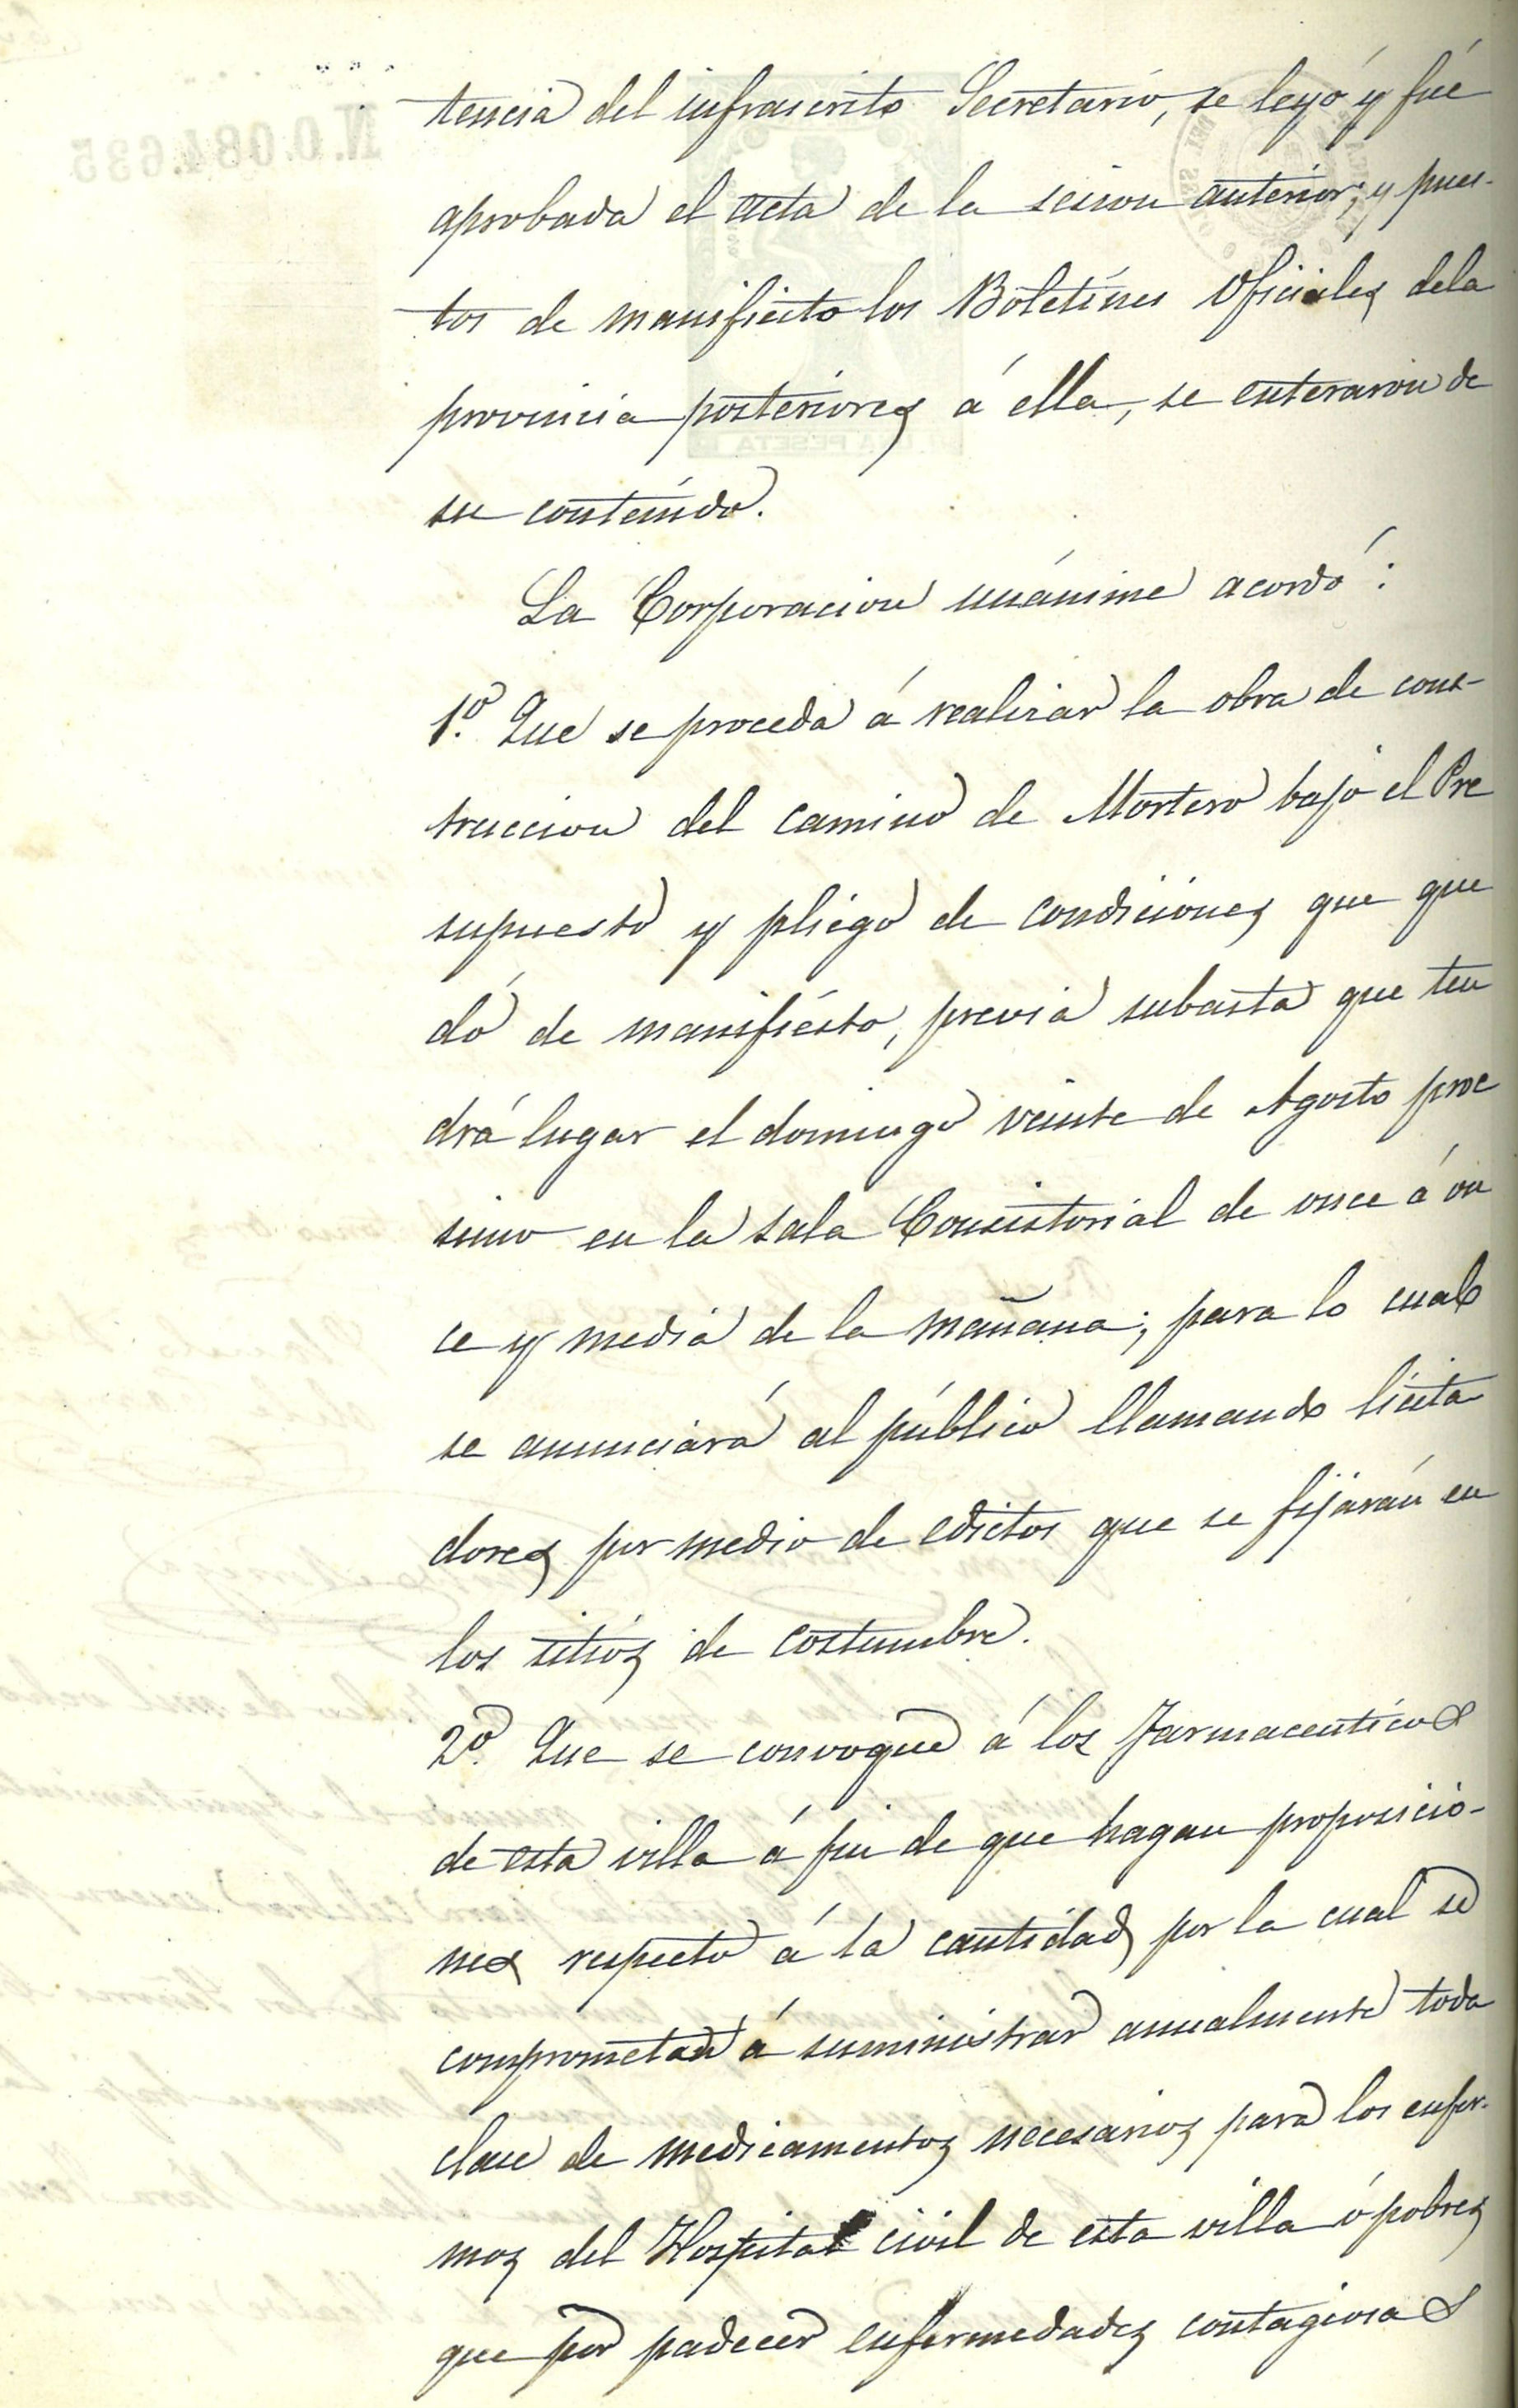 tencia del infrascrito Secretario, se leyó y fué
aprobada el acta de la sesion anterior; y pues-
tos de manifiesto los Boletines Oficiales dela
provincia posteriores á ella, se enteraron de
su contenido.
La Corporacion unánime acordó:
1.º Que se proceda á realizar la obra de cons-
truccion del camino de Mortero bajo el Pre
supuesto y pliego de condiciones que que
dó de manifiesto, previa subasta que ten
drá lugar el domingo veinte de Agosto proc
simo en la sala Consistorial de once á on
ce y media de la mañana; para lo cual
se anunciará al público llamando licita
dores por medio de edictos que se fijarán en
los sitios de costumbre.
2.º Que se convoque á los Farmaceuticos
de esta villa á fin de que hagan proposicio-
nes respecto á la cantidad por la cual se
comprometan á suministrar anualmente toda
clase de medicamentos necesarios para los enfer-
mos del Hospital civil de esta villa ó pobres
que por padecer enfermedades contagiosas